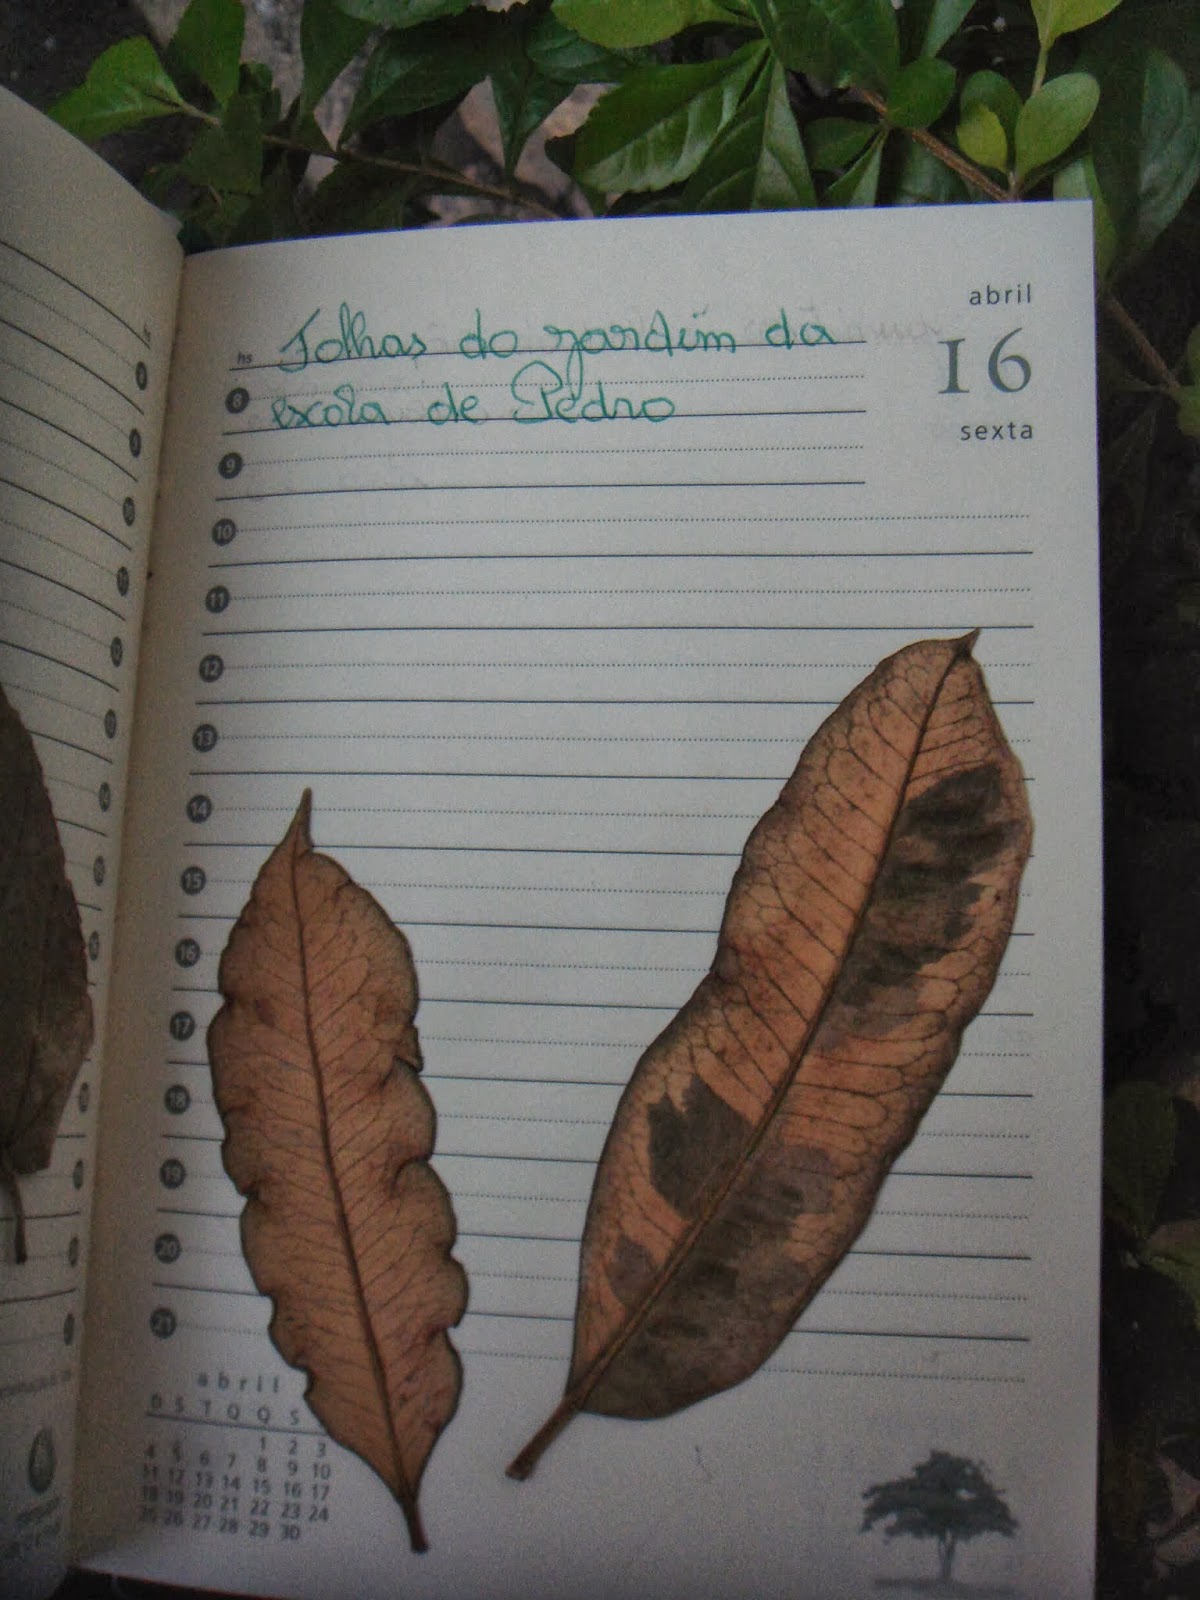 abril
16
sexta
Folhas do jardim da
escola de Pedro
hs
8
9
10
11
12
13
14
15
16
17
18
19
20
21
abril
D S T Q Q S
1 2 3
4 5 6 7 8 9 10
11 12 13 14 15 16 17
18 19 20 21 22 23 24
25 26 27 28 29 30